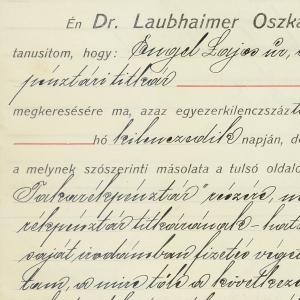 Én Dr. Laubhaimer Oszká
tanusítom, hogy: Engel Lajos úr,
pénztári titkár
megkeresésére ma, azaz egyezerkilencszáz
hó kilenczedik napján, de
a melynek szószerinti másolata a tulsó oldalo
Takarékpénztár" részére,
rékpénztár titkárának - hat
saját irodámban fizetés vége
tam, a mire tőle a következ